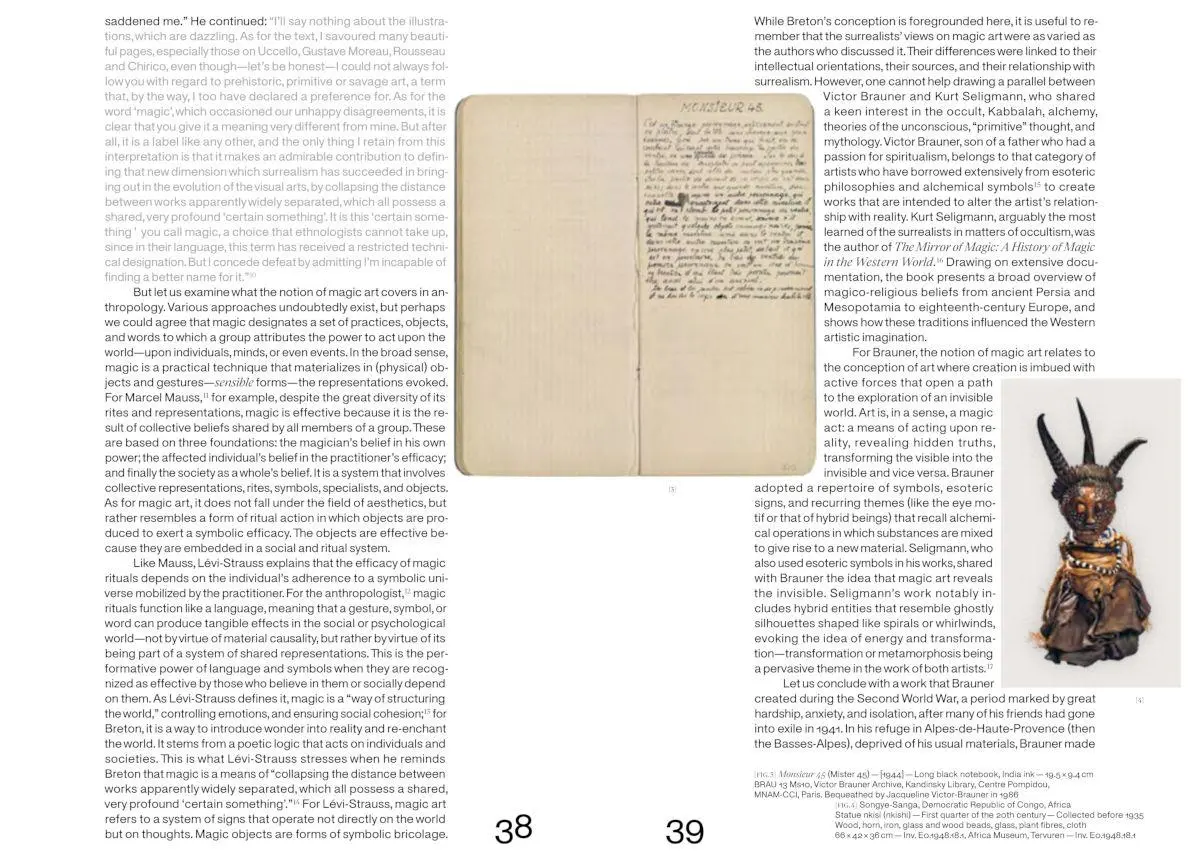 saddened me.” He continued: “I’ll say nothing about the illustra-
tions, which are dazzling. As for the text, I savoured many beauti-
ful pages, especially those on Uccello, Gustave Moreau, Rousseau
and Chirico, even though—let’s be honest—I could not always fol-
low you with regard to prehistoric, primitive or savage art, a term
that, by the way, I too have declared a preference for. As for the
word ‘magic’, which occasioned our unhappy disagreements, it is
clear that you give it a meaning very different from mine. But after
all, it is a label like any other, and the only thing I retain from this
interpretation is that it makes an admirable contribution to defin-
ing that new dimension which surrealism has succeeded in bring-
ing out in the evolution of the visual arts, by collapsing the distance
between works apparently widely separated, which all possess a
shared, very profound ‘certain something’. It is this ‘certain some-
thing’ you call magic, a choice that ethnologists cannot take up,
since in their language, this term has received a restricted techni-
cal designation. But I concede defeat by admitting I’m incapable of
finding a better name for it.”10
But let us examine what the notion of magic art covers in an-
thropology. Various approaches undoubtedly exist, but perhaps
we could agree that magic designates a set of practices, objects,
and words to which a group attributes the power to act upon the
world—upon individuals, minds, or even events. In the broad sense,
magic is a practical technique that materializes in (physical) ob-
jects and gestures—sensible forms—the representations evoked.
For Marcel Mauss,11 for example, despite the great diversity of its
rites and representations, magic is effective because it is the re-
sult of collective beliefs shared by all members of a group. These
are based on three foundations: the magician’s belief in his own
power; the affected individual’s belief in the practitioner’s efficacy;
and finally the society as a whole’s belief. It is a system that involves
collective representations, rites, symbols, specialists, and objects.
As for magic art, it does not fall under the field of aesthetics, but
rather resembles a form of ritual action in which objects are pro-
duced to exert a symbolic efficacy. The objects are effective be-
cause they are embedded in a social and ritual system.
Like Mauss, Lévi-Strauss explains that the efficacy of magic
rituals depends on the individual’s adherence to a symbolic uni-
verse mobilized by the practitioner. For the anthropologist,12 magic
rituals function like a language, meaning that a gesture, symbol, or
word can produce tangible effects in the social or psychological
world—not by virtue of material causality, but rather by virtue of its
being part of a system of shared representations. This is the per-
formative power of language and symbols when they are recog-
nized as effective by those who believe in them or socially depend
on them. As Lévi-Strauss defines it, magic is a “way of structuring
the world,” controlling emotions, and ensuring social cohesion;13 for
Breton, it is a way to introduce wonder into reality and re-enchant
the world. It stems from a poetic logic that acts on individuals and
societies. This is what Lévi-Strauss stresses when he reminds
Breton that magic is a means of “collapsing the distance between
works apparently widely separated, which all possess a shared,
very profound ‘certain something’.”14 For Lévi-Strauss, magic art
refers to a system of signs that operate not directly on the world
but on thoughts. Magic objects are forms of symbolic bricolage.
MONSIEUR 45
[3]
38
39
While Breton’s conception is foregrounded here, it is useful to re-
member that the surrealists’ views on magic art were as varied as
the authors who discussed it. Their differences were linked to their
intellectual orientations, their sources, and their relationship with
surrealism. However, one cannot help drawing a parallel between
Victor Brauner and Kurt Seligmann, who shared
a keen interest in the occult, Kabbalah, alchemy,
theories of the unconscious, “primitive” thought, and
mythology. Victor Brauner, son of a father who had a
passion for spiritualism, belongs to that category of
artists who have borrowed extensively from esoteric
philosophies and alchemical symbols15 to create
works that are intended to alter the artist’s relation-
ship with reality. Kurt Seligmann, arguably the most
learned of the surrealists in matters of occultism, was
the author of The Mirror of Magic: A History of Magic
in the Western World.16 Drawing on extensive docu-
mentation, the book presents a broad overview of
magico-religious beliefs from ancient Persia and
Mesopotamia to eighteenth-century Europe, and
shows how these traditions influenced the Western
artistic imagination.
For Brauner, the notion of magic art relates to
the conception of art where creation is imbued with
active forces that open a path
to the exploration of an invisible
world. Art is, in a sense, a magic
act: a means of acting upon re-
ality, revealing hidden truths,
transforming the visible into the
invisible and vice versa. Brauner
adopted a repertoire of symbols, esoteric
signs, and recurring themes (like the eye mo-
tif or that of hybrid beings) that recall alchemi-
cal operations in which substances are mixed
to give rise to a new material. Seligmann, who
also used esoteric symbols in his works, shared
with Brauner the idea that magic art reveals
the invisible. Seligmann’s work notably in-
cludes hybrid entities that resemble ghostly
silhouettes shaped like spirals or whirlwinds,
evoking the idea of energy and transforma-
tion—transformation or metamorphosis being
a pervasive theme in the work of both artists.17
Let us conclude with a work that Brauner
created during the Second World War, a period marked by great
hardship, anxiety, and isolation, after many of his friends had gone
into exile in 1941. In his refuge in Alpes-de-Haute-Provence (then
the Basses-Alpes), deprived of his usual materials, Brauner made
[4]
[FIG.3] Monsieur 45 (Mister 45) — [1944] — Long black notebook, India ink — 19.5 × 9.4 cm
BRAU 13 Ms10, Victor Brauner Archive, Kandinsky Library, Centre Pompidou,
MNAM-CCI, Paris. Bequeathed by Jacqueline Victor-Brauner in 1986
[FIG.4] Songye-Sanga, Democratic Republic of Congo, Africa
Statue nkisi (nkishi) — First quarter of the 20th century — Collected before 1935
Wood, horn, iron, glass and wood beads, glass, plant fibres, cloth
66 × 42 × 36 cm — Inv. Eo.1948.18.1, Africa Museum, Tervuren — Inv. Eo.1948.18.1